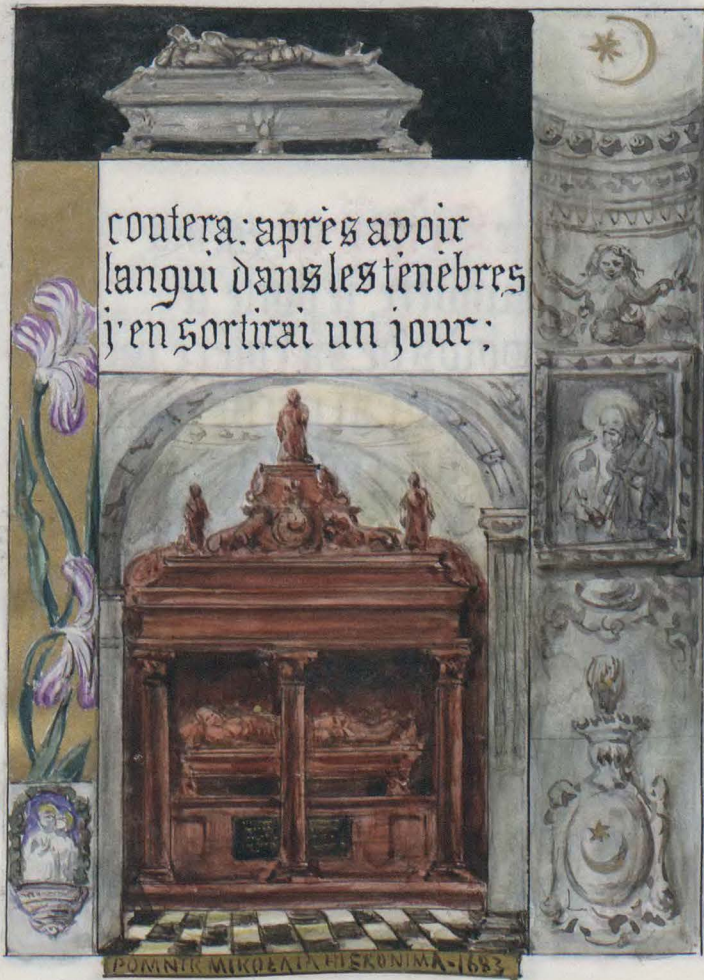 coutera: après avoir
langui dans les ténèbres
j'en sortirai un jour;
POMNIK MIKOŁAIA HIERONIMA · 1683